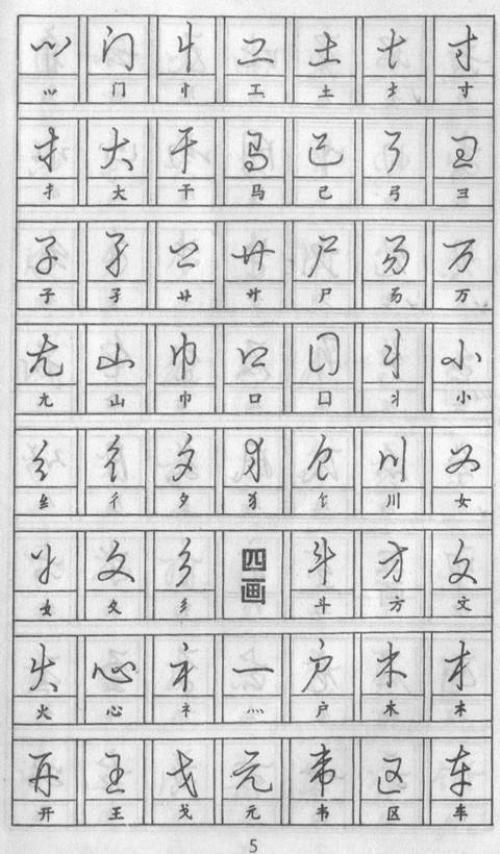 ⺍ 门 忄 工 土 士 寸
⺍ 门 忄 工 土 士 寸
扌 大 干 马 己 弓 彐
扌 大 干 马 己 弓 彐
子 孑 廾 艹 尸 万
子 孑 廾 艹 尸 万
尢 山 巾 口 囗 丬 小
尢 山 巾 口 囗 丬 小
纟 彳 夕 犭 饣 川 女
纟 彳 夕 犭 饣 川 女
女 夂 彡 四画 斗 方 文
女 夂 彡 斗 方 文
火 心 礻 灬 户 木 木
火 心 礻 灬 户 木 木
开 王 戈 元 韦 区 车
开 王 戈 元 韦 区 车
5